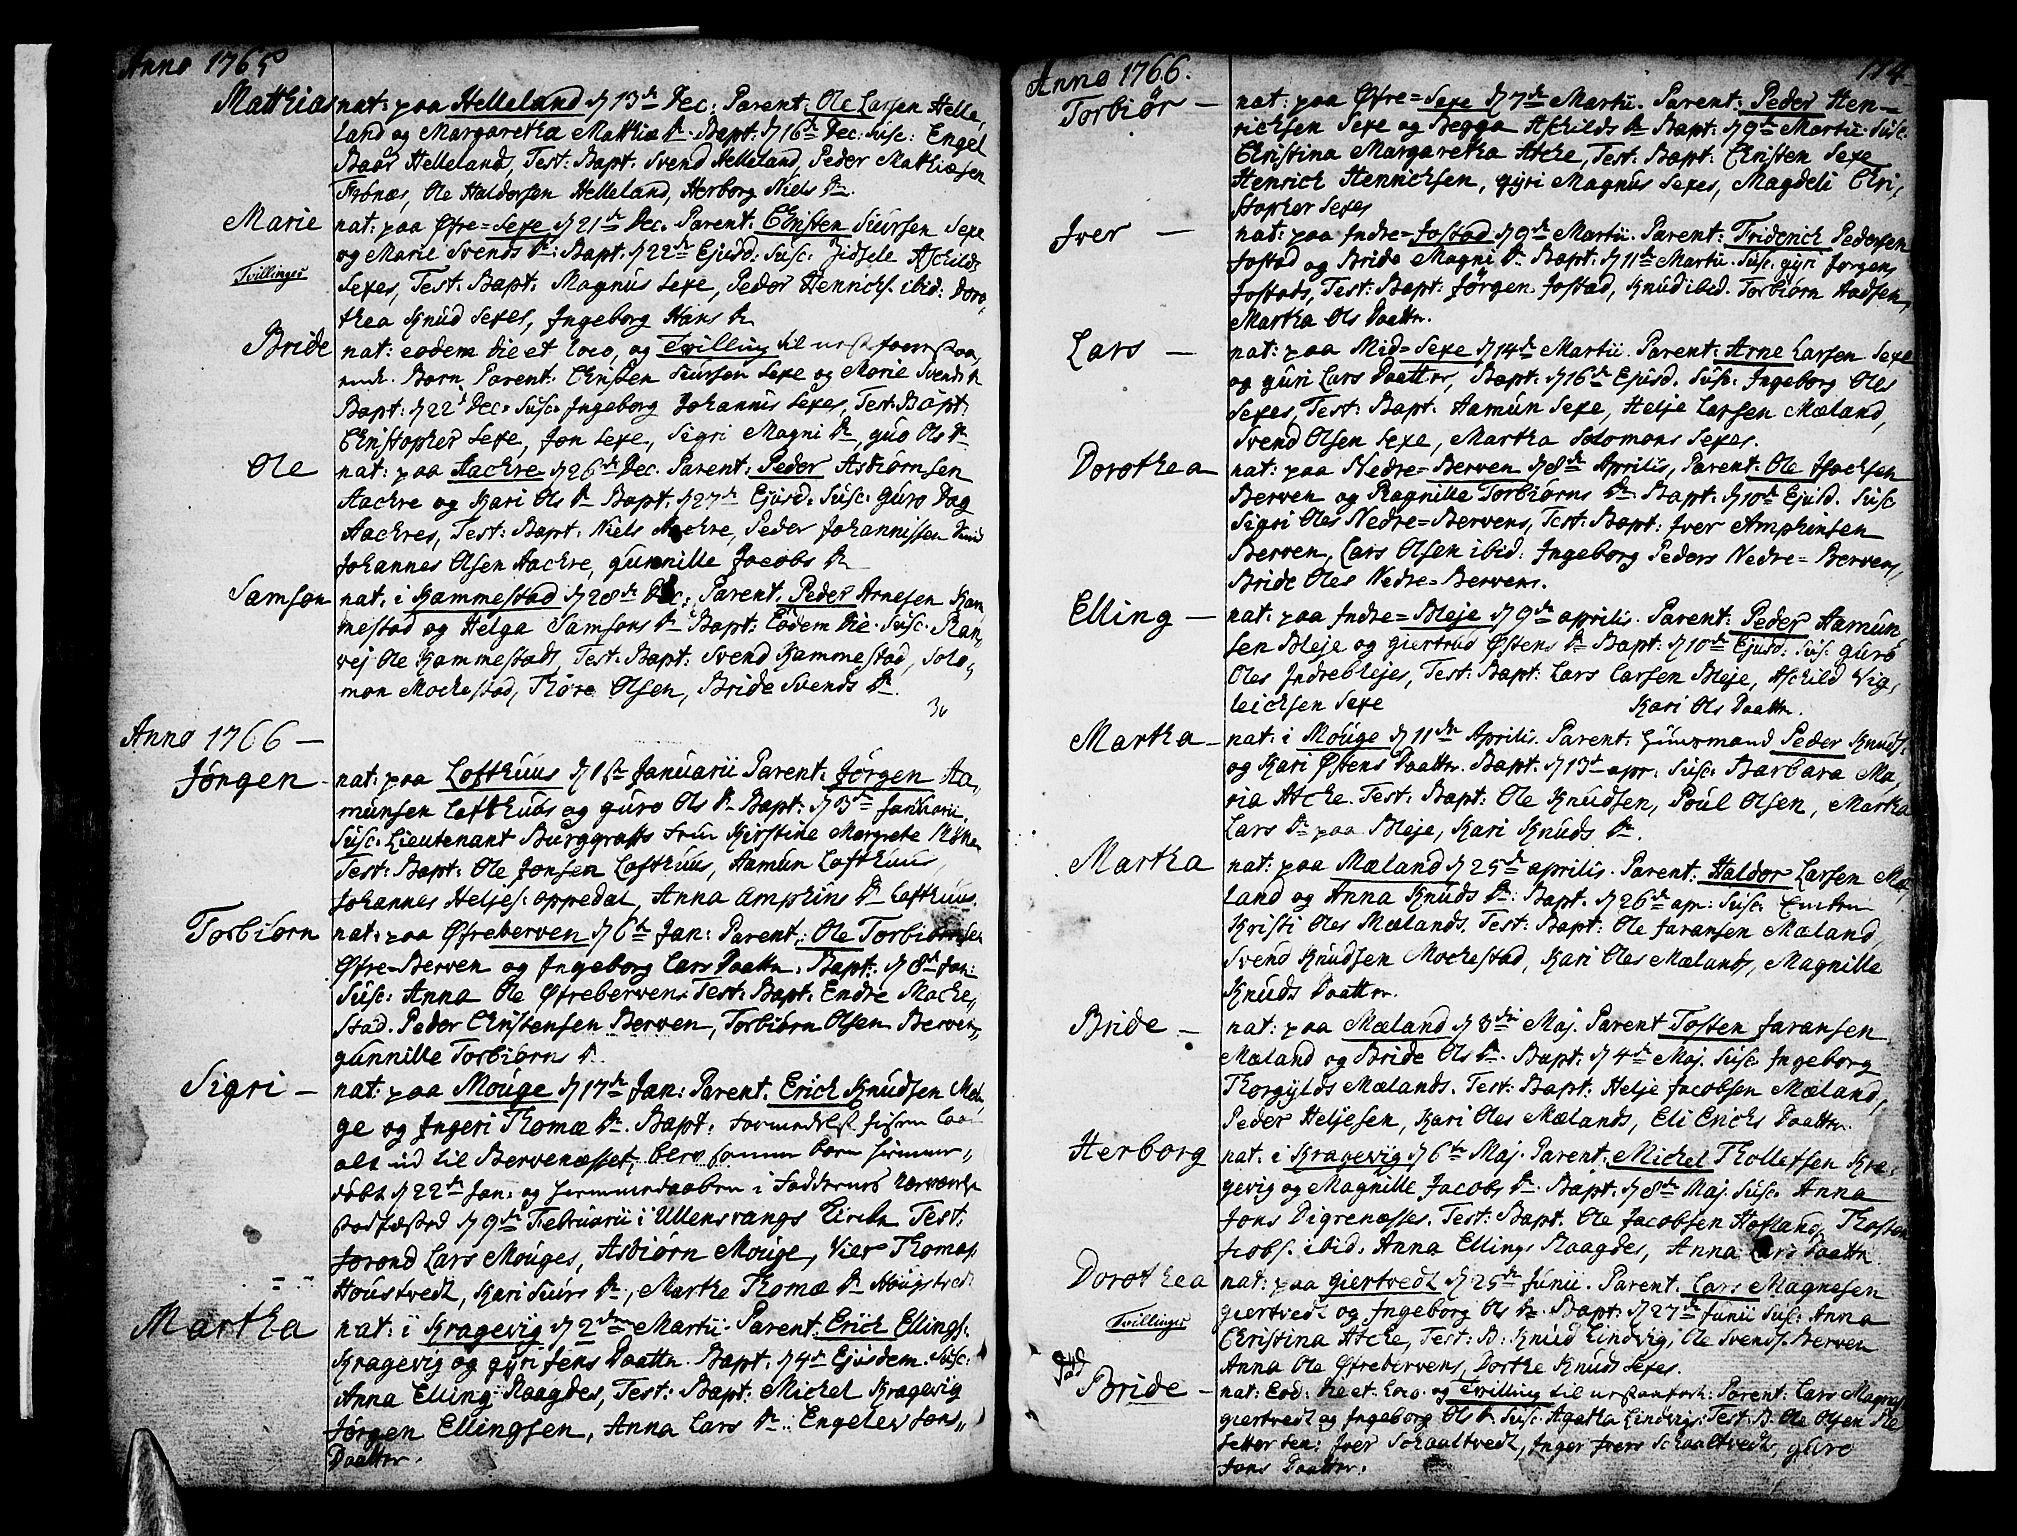 Anno 1765
Mathias nat: paa Helleland d 13de Dec: Parent: Ole Larsen Helle,
land og Margaretha Mathiæ Dr. Bapt: d 16de Dec: Susc: Engel
Baar Hellelands, Test: Bapt: Svend Helleland, Peder Mathiæsen
Frönæs, Ole Haldorsen Helleland, Herborg Niels Dr.
Marie nat: paa Öfre=Sexe d 21de Dec. Parent: Christen Siursen Sexe
og Marie Svends Dr: Bapt. d 22de Ejusd. Susc: Zidsele Aschilds
Tvillinger
Sexes, Test: Bapt: Magnus Sexe, Peder Henrichs. ibid: Doro,
thea Knud Sexes, Ingeborg Hans Dr
Bride nat: eodem die et loco, og Tvilling til
Barn. Parent: Christen Siursen Sexe og Marie Svends Dr
Bapt: d 22 Dec: Susc: Ingeborg Johannis Sexes, Test: Bapt:
Christopher Sexe, Jon Sexe, Sigri Magni Dr, Guro Ols Dr
Ole nat: paa Aachre d 26de Dec. Parent: Peder Asbiörnsen
Aachre og Kari Ols Dr Bapt: d 27de Ejusd: Susc: Guro Dag
Aachres, Test: Bapt: Niels Aachre, Peder Johannissen ibid
Johannes Olsen Aachre, Gunnille Jacobs Dr
Samson nat. i Kammestad d 28de Dec: Parent. Peder Arnesen Kam,
mestad og Helga Samsons Dr Bapt: Eodem Die. Susc. Ran,
vej Ole Kammestads, Test: Bapt: Svend Kammestad, Solo,
mon Mochestad, Thore Olsen, Bride Svends Dr.
36
Anno 1766 —
Jörgen — nat: paa Lofthuus d 1ste Januarii Parent: Jörgen Aa,
munsen Lofthuus og Guro Ols Dr Bapt: d 3de Januarii.
Susc: Lieutenant Burggraffs Frue Kirstine Margrete
Test: Bapt: Ole Jonsen Lofthuus, Aamun Lofthuus,
Johannes Heljes: Oppedal, Anna Amphins Dr Lofthuus.
Torbiörn nat: paa Öfreberven d 6te Jan: Parent: Ole Torbiörnsen
Öfre=Berven og Ingeborg Lars Daatter. Bapt: d 8de Jan:
Susc: Anna Ole Öfrebervens Test: Bapt: Endre Moche,
stad. Peder Christensen Berven, Torbiörn Olsen Berven,
Gunnille Torbiörns Dr
Sigri — nat: paa Mouge d 17de Jan: Parent. Erich Knudsen Mou,
ge og Ingeri Thomæ Dr. Bapt: formedelst
alt ud til Bervenæsset, blev samme Barn hjemme-
döbt d 22de Jan: og hjemmedaaben i Faddernes nærværelse
stadfæsted d 9de Februarii i Ullensvangs Kirche Test:
Jorond Lars Mouges, Asbiörn Mouge, Vier Thomas:
Houstvedt, Kari Siurs Dr, Martha Thomæ Dr
Martha nat: i Kragevig d 2den Martii. Parent: Erich Ellings:
Kragevig og Gyri Jens Daatter. Bapt: d 4de Ejusdem. Susc:
Anna Elling Raagdes, Test: Bapt: Michel Kragevig
Jörgen Ellingsen, Anna Lars Dr: Engelev Jons
Daatter.
Anno 1766.
174
Torbiör — nat: paa Öfre=Sexe d 7de Martii. Parent: Peder Hen-
richsen Sexe og Begga Aschilds Dr Bapt: d 9de Martii: Susc:
Christina Margaretha Atche, Test: Bapt: Christen Sexe
Henrich Henrichsen, Gyri Magnus Sexes, Magdeli Chri,
stopher Sexes
Iver — nat: paa Indre=Jostad d 9de Martii. Parent: Friderich Pedersen
Jostad og Bride Magni Dr. Bapt: d 11te Martii. Susc: Gyri Jörgens
Jostads, Test: Bapt: Jörgen Jostad, Knud ibid. Torbiörn Aadsen,
Martha Ols Daatter.
Lars — nat: paa Mid=Sexe d 14de Martii. Parent: Arne Larsen Sexe
og Guri Lars Daatter, Bapt: d 16de Ejusd. Susc: Ingeborg Oles
Sexes, Test: Bapt: Aamun Sexe, Helje Larsen Mæland,
Svend Olsen Sexe, Martha Solomons Sexes.
Dorothea nat: paa Nedre=Berven d 8de Aprilis, Parent: Ole Isachsen
Berven og Ragnille Torbiörns Dr. Bapt: d 10de Ejusd. Susc:
Sigri Oles Nedre=Bervens, Test: Bapt: Iver Amphinsen
Berven, Lars Olsen ibid: Ingeborg Peders Nedre=Bervens,
Bride Oles Nedre=Bervens.
Elling — nat: paa Indre=Bleje d 9de Aprilis. Parent: Peder Aamun,
sen Bleje og Giertrud Östens Dr Bapt: d 10de Ejusd: Susc: Guro
Oles Indreblejes, Test: Bapt: Lars Larsen Bleje, Aschild Vig,
leichsen Sexe Kari Ols Daatter.
Martha — nat: i Mouge d 11te Aprilis. Parent: Huusmand Peder Knuds:
og Kari Östens Daatter. Bapt: d 13de apr: Susc: Barbara Ma,
ria Atche. Test: Bapt: Ole Knudsen, Poul Olsen, Martha
Lars Dr paa Bleje, Kari Knuds Dr.
Martha nat: paa Mæland d 25de aprilis. Parent: Haldor Larsen Mæ,
land og Anna Knuds Dr: Bapt. d 26de apr: Susc:
Kristi Oles Mælands. Test: Bapt: Ole Jaransen Mæland,
Svend Knudsen Mochestad, Kari Oles Mælands, Magnille
Knuds Daatter.
Bride — nat: paa Mæland d 3de Maj. Parent Tosten Jaransen
Mæland og Bride Ols Dr. Bapt: d 4de Maj. Susc: Ingeborg
Thorgylds Mælands. Test: Bapt: Helje Jacobsen Mæland,
Peder Heljesen, Kari Oles Mælands, Eli Erichs Daatter.
Herborg nat: i Kragevig d 6te Maj. Parent: Michel Thollefsen Kra,
gevig og Magnille Jacobs Dr: Bapt: d 8de Maj. Susc: Anna
Jons Digrenæsses. Test: Bapt: Ole Jacobsen Hofland, Thosten
Jacobs. ibid: Anna Ellings Raagdes, Anna Lars Daatter.
Dorothea nat: paa Giertvedt d 25de Junii. Parent. Lars Magnesen
Giertvedt og Ingeborg Ols Dr. Bapt: d 27de Junii Susc: Anna
Tvillinger
Christina Atche, Test: B: Knud Lindvig, Ole Svends. Berven
Anna Ole Öfrebervens, Dorthe Knuds Sexes.
Bride — nat: Eod: Die et: loco: og Tvilling til Parent: Lars Magnes:
Giertvedt og Ingeborg Ols Dr. Susc: Agatha Lindvigs: Test: B. Ole Olsen
Iver Schaaltvedt, Inger Ivers Schaaltvedts, Guro
Jons Daatter.